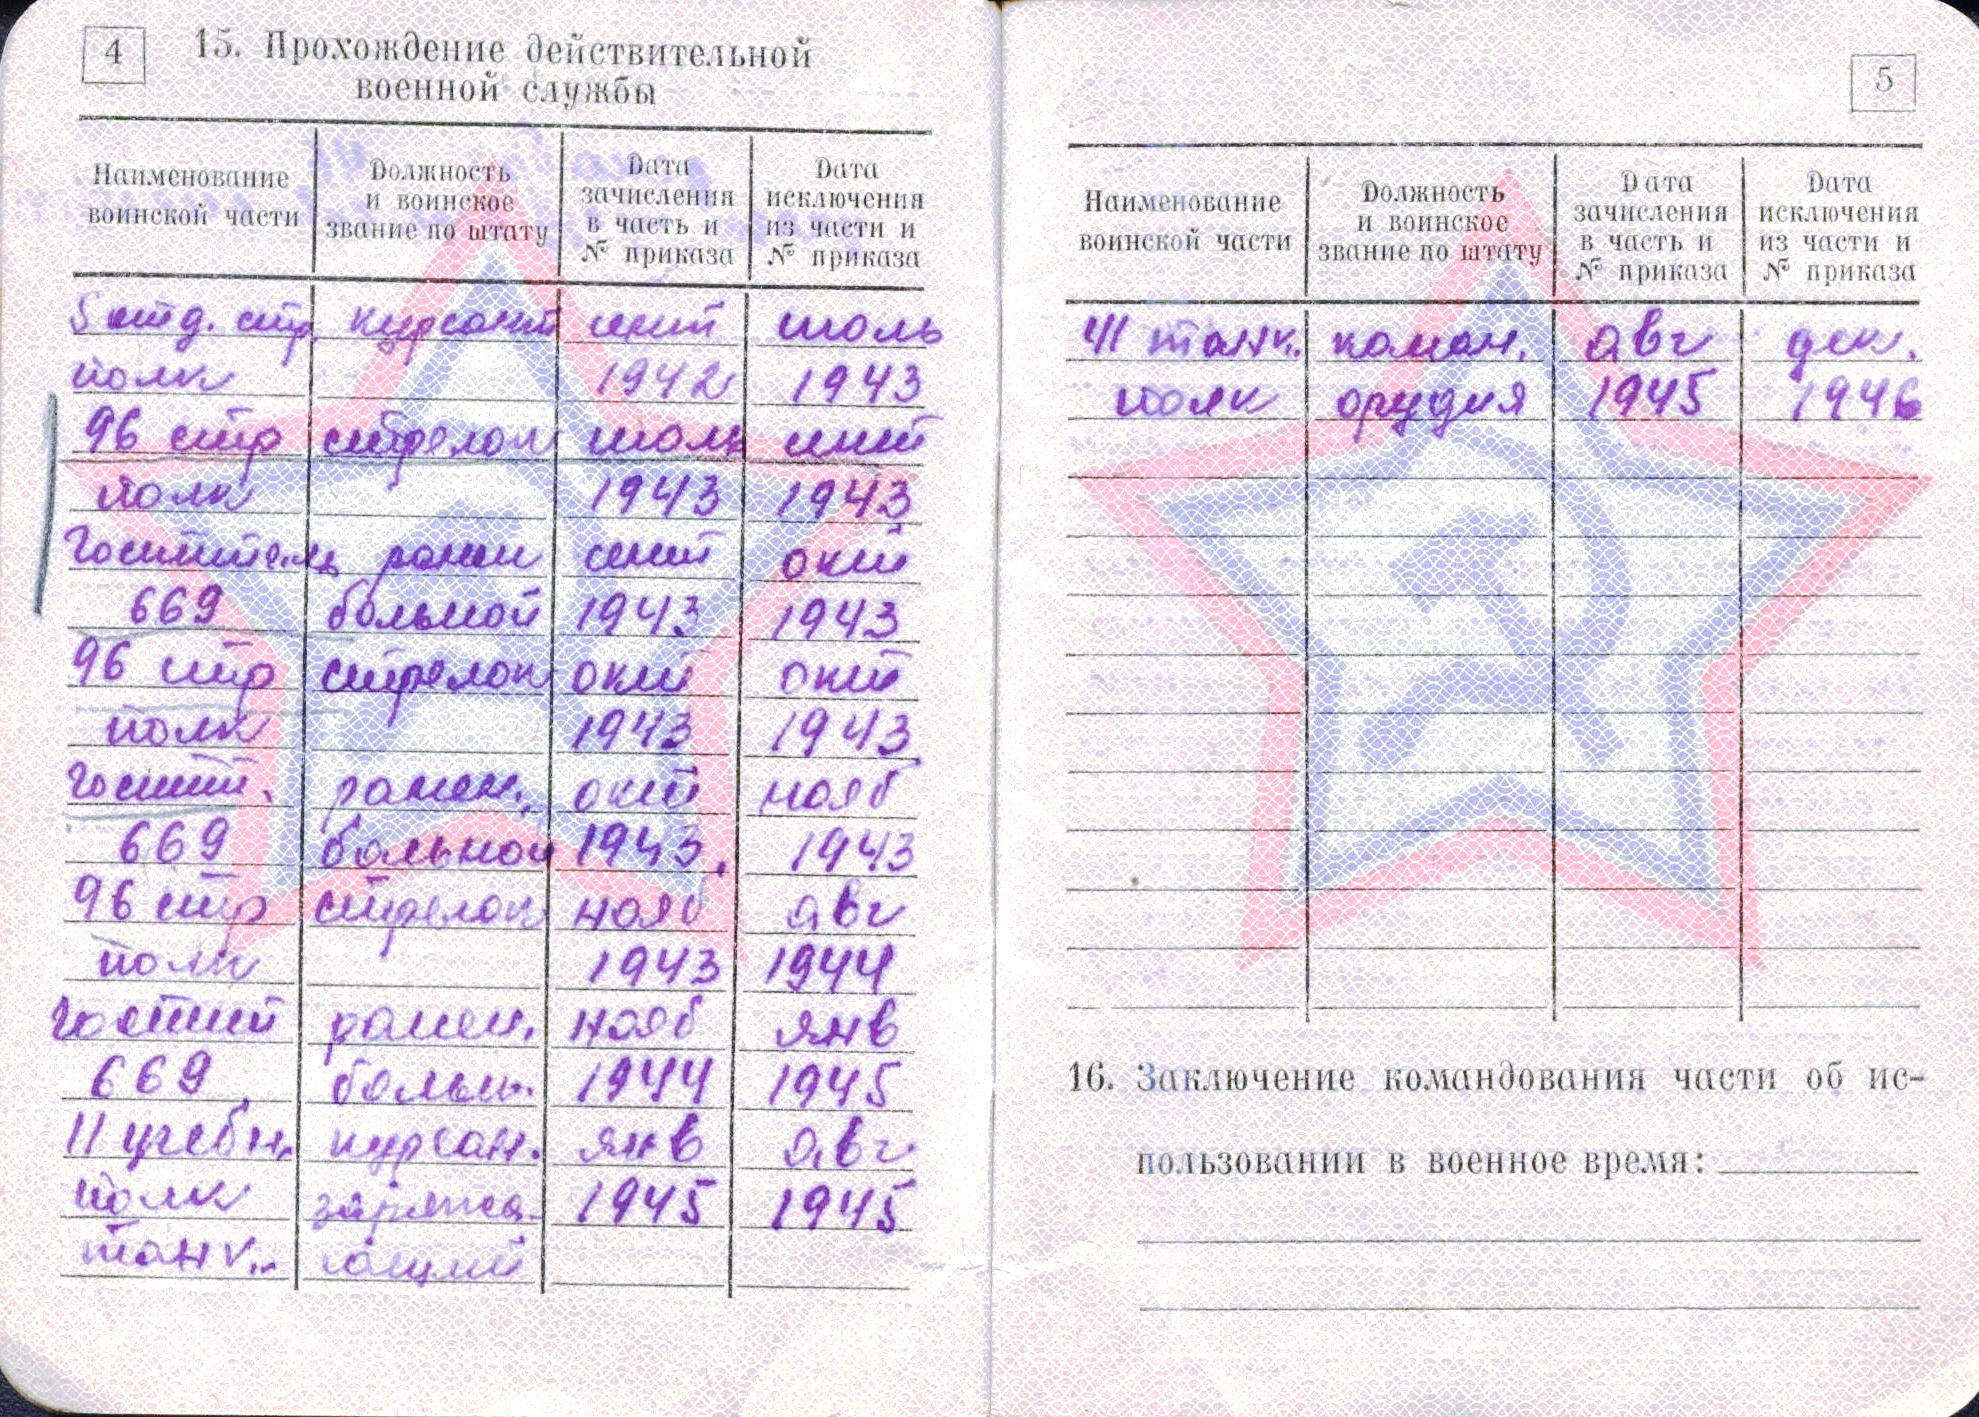 4
15. Прохождение действительной
военной службы
Наименование воинской части | Должность и воинское звание по штату | Дата зачисления в часть и № приказа | Дата исключения из части и № приказа
5 отд. стр. курсант сент июль
полк 1942 1943
96 стр стрелок июль сент
полк 1943 1943
Госпиталь ранен сент окт
669 больной 1943 1943
96 стр стрелок окт окт
полк 1943 1943
Госпит. ранен., окт нояб
669 больной 1943. 1943
96 стр стрелок нояб авг
полк 1943 1944
Госпит ранен. нояб янв
669 больн. 1944 1945
11 учебн. курсан. янв авг
полк заряжа- 1945 1945
танк. ющий
5
Наименование воинской части | Должность и воинское звание по штату | Дата зачисления в часть и № приказа | Дата исключения из части и № приказа
41 танк. коман. авг дек.
полк орудия 1945 1946
16. Заключение командования части об ис-
пользовании в военное время: